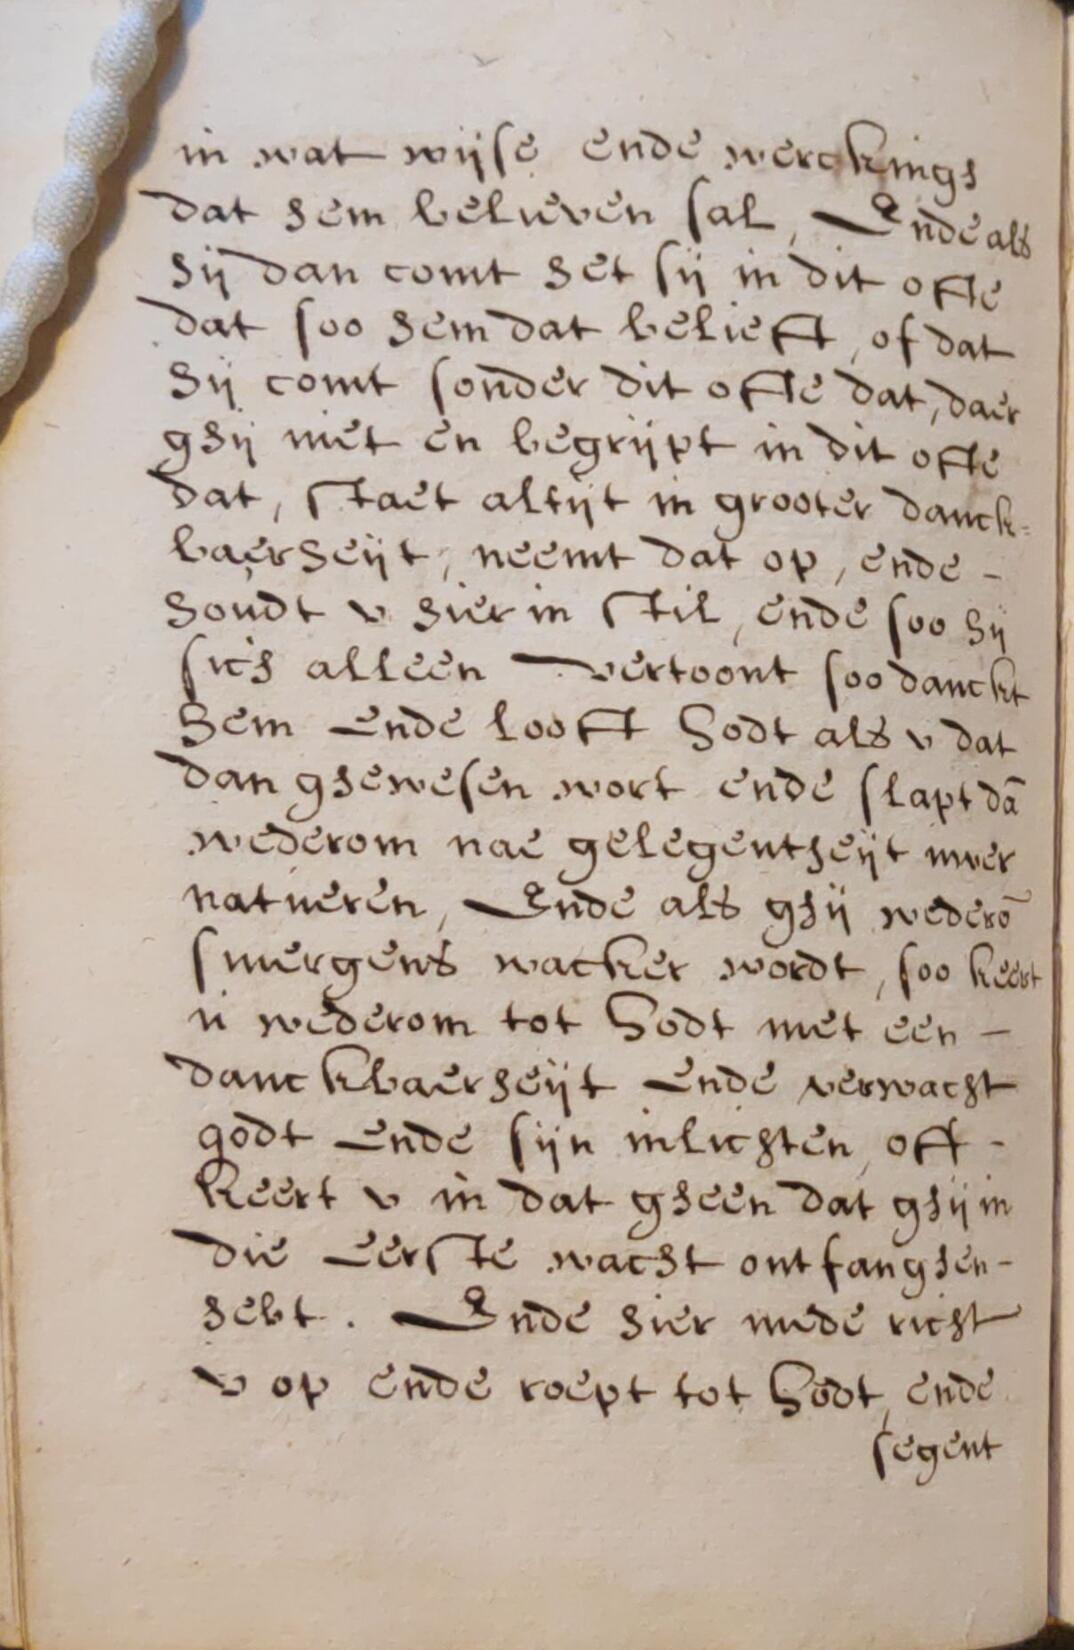 in wat wijse ende werckings
dat hem believen sal, Ende als
hij dan comt het sij in dit ofte
dat soo hem dat belieft, of dat
hij comt sonder dit ofte dat, daer
ghij niet en begrijpt in dit ofte
dat, staet altijt in grooter danck-
baerheijt, neemt dat op, ende -
houdt v hier in stil, ende soo hij
sich alleen vertoont soo danckt
hem ende looft Godt als v dat
dan ghewesen wort ende slapt dā
wederom nae gelegentheijt uwer
natueren, Ende als ghij wederō
smergens wacker wordt, soo keert
u wederom tot Godt met een -
danckbaerheijt ende verwacht
godt ende sijn inlichten, oft -
keert v in dat gheen dat ghij in
die eerste wacht ontfanghen -
hebt. Ende hier mede richt
v op ende roept tot Godt, ende
segent